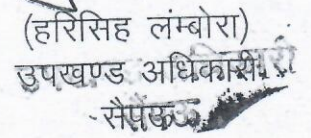 (हरिसिह लंम्बोरा)
उपखण्ड अधिकारी
सैपऊ